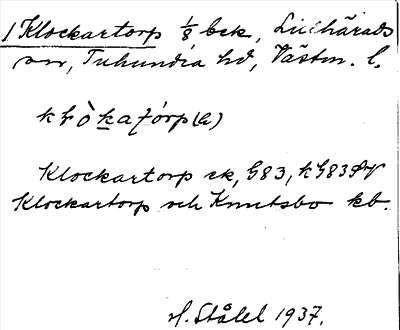 1 Klockartorp 1/8 bek, Lillhärads
sn, Tuhundra hd, Västm. l.
Klockartorp ek, G83, k G83
Klockartorp och Knutsbo kb.
H. Ståhl 1937.